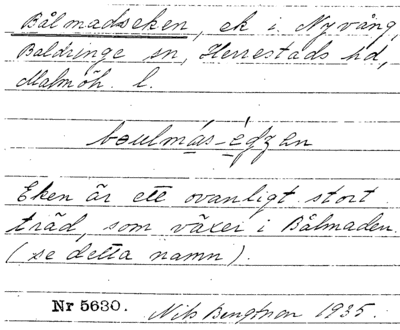 Bålmadseken, ek i Nyvång,
Baldringe sn, Herrestads hd,
Malmöh. l.
Eken är ett ovanligt stort
träd, som växer i Bålmaden.
(se detta namn).
Nr 5630. Nils Bengtsson 1935.